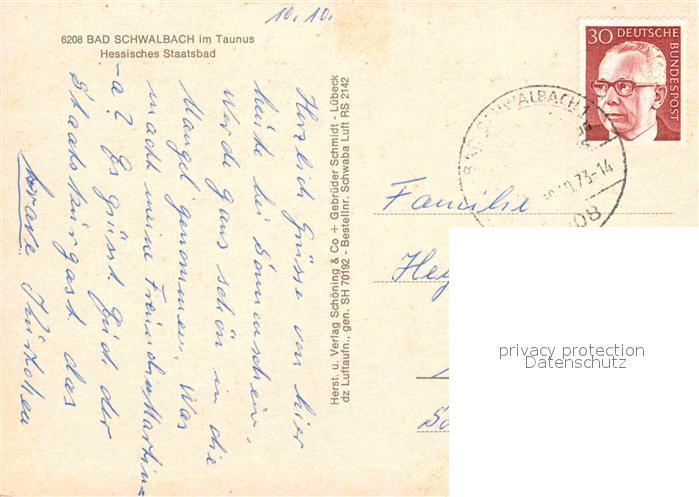 10.10.
6208 BAD SCHWALBACH im Taunus
Hessisches Staatsbad
Herzlich Grüsse von hier
heute bei Sonnenschein,
werde ganz schön in die
Mangel genommen. Was
macht meine Freundin Martin
-a? Es grüsst Euch der
Staatskurgast das
brave
Herst. u. Verlag Schöning & Co + Gebrüder Schmidt - Lübeck
dz Luftaufn., gen. SH 70192 - Bestellnr. Schwaba Luft RS 2142
30 DEUTSCHE
BUNDESPOST
BAD SCHWALBACH
.73-14
Familie
Hey
privacy protection
Datenschutz